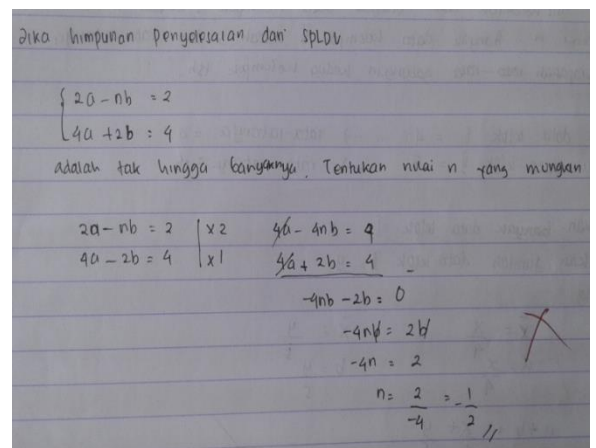 Jika himpunan penyelesaian dari SPLDV
2a - nb = 2
4a + 2b = 4
adalah tak hingga banyaknya. Tentukan nilai n yang mungkin
2a - nb = 2 | x2 4a - 4nb = 4
4a - 2b = 4 | x1 4a + 2b = 4 -
-4nb - 2b = 0
-4nb = 2b
-4n = 2
n = 2/-4 = -1/2 //